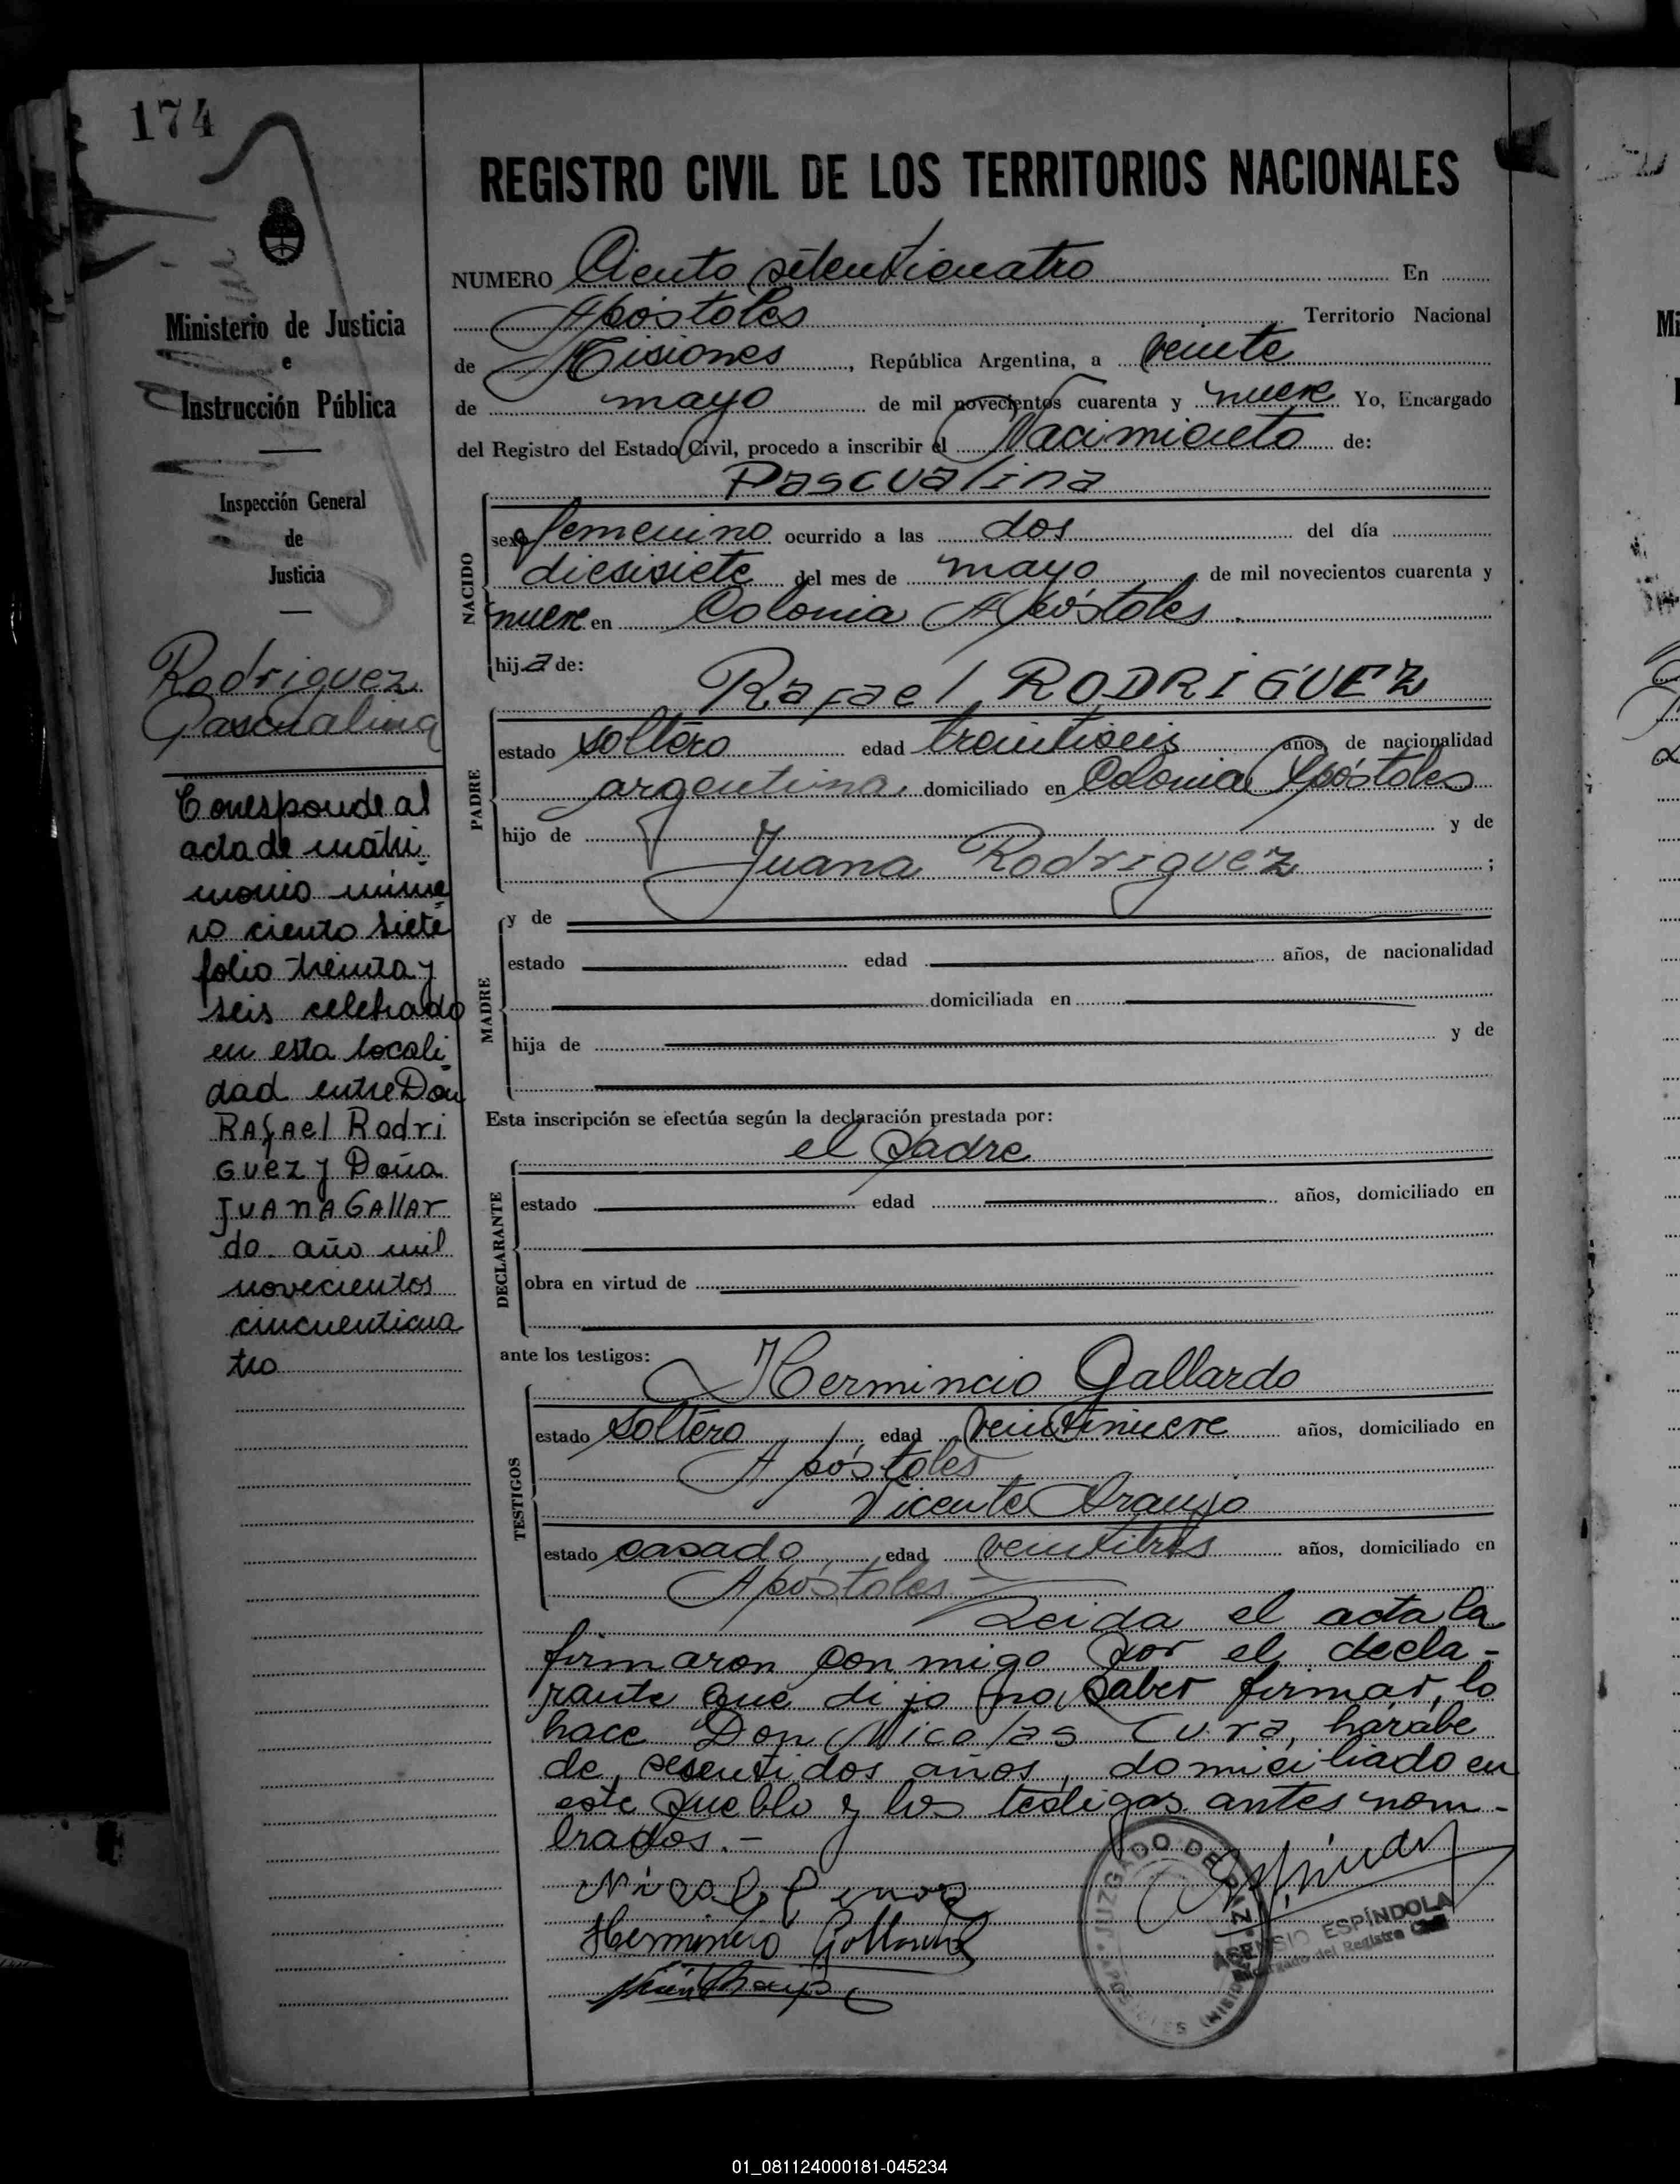 174
REGISTRO CIVIL DE LOS TERRITORIOS NACIONALES
NUMERO Ciento setenticuatro En
Apóstoles Territorio Nacional
de Misiones, República Argentina, a veinte
de mayo de mil novecientos cuarenta y nueve Yo, Encargado
del Registro del Estado Civil, procedo a inscribir el Nacimiento de:
Pascualina
NACIDO
sexo femenino ocurrido a las dos del día
diesisiete del mes de mayo de mil novecientos cuarenta y
nueve en Colonia Apóstoles.
hija de:
Rafael RODRIGUEZ
PADRE
estado soltero edad treintiseis años, de nacionalidad
argentina, domiciliado en Colonia Apóstoles
hijo de y de
Juana Rodriguez ;
MADRE
y de
estado edad años, de nacionalidad
domiciliada en
hija de y de
Esta inscripción se efectúa según la declaración prestada por:
el padre
DECLARANTE
estado edad años, domiciliado en
obra en virtud de
ante los testigos:
Hermincio Gallardo
TESTIGOS
estado soltero, edad veintinueve años, domiciliado en
Apóstoles
Vicente Araujo
estado casado, edad veintitres años, domiciliado en
Apóstoles
Leida el acta la
firmaron conmigo por el decla-
rante que dijo no saber firmar, lo
hace Don Nicolas Cura, harabe
de sesentidos años, domiciliado en
este pueblo y los testigos antes nom-
brados.-
Ministerio de Justicia
e
Instrucción Pública
Inspección General
de
Justicia
Rodriguez
Pascualina
Corresponde al
acta de matri-
monio núme-
ro ciento siete
folio treinta y
seis celebrado
en esta locali-
dad entre Don
RAfAel Rodri
GUEZ y Doña
JUANA GAllAR
do año mil
novecientos
cincuenticua
tro
Hermincio Gallardo
JUZGADO DE PAZ
APOSTOLES (MISIONES)
ASENSIO ESPÍNDOLA
Encargado del Registro Civil
01_081124000181-045234